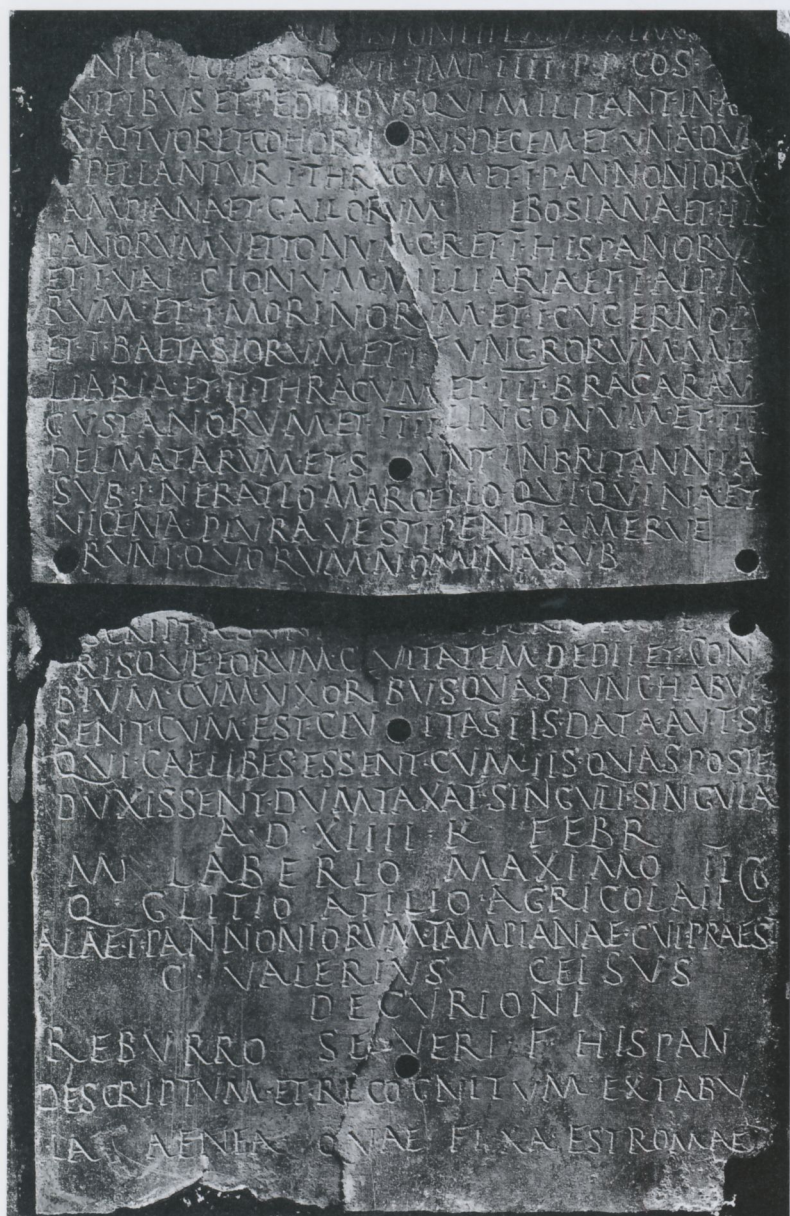 PONTIF MAXIMVS
NIC POTESTA VII IMP IIII P P COS
VITIBVS ET PEDITIBVS QVI MILITANT IN
VATTVOR ET COHORTI BVS DECEM ET VNA QV
PPELLANTVR I THRACVM ET I PANNONIORV
AMPIANA ET GALLORVM EBOSIANA ET HIS
PANORVM VETTONVM CR ET I HISPANORV
ET I VAL CIONVM MILLIARIA ET I ALPIN
RVM ET I MORINORVM ET I CVGERNOR
ET I BAETASIORVM ET I TVNGRORVM MIL
LIARIA ET II THRACVM ET III BRACARAV
GVSTANORVM ET IIII LINGONVM ET IIII
DELMATARVM ET S VNT IN BRITANNIA
SVB I NERATIO MARCELLO QVI QVINA ET
VICENA PLVRAVE STIPENDIA MERVE
RVNT QVORVM NOMINA SVB
SCRIPTA SVNT
RISQVE EORVM CIVITATEM DEDIT ET CON
BIVM CVM VXORIBVS QVAS TVNC HABVIS
SENT CVM EST CIV ITAS IIS DATA AVT SI
QVI CAELIBES ESSENT CVM IIS QVAS POSTE
DVXISSENT DVMTAXAT SINGVLI SINGVLA
A D XIIII K FEBR
M LABERIO MAXIMO II
Q GLITIO ATILIO AGRICOLA II COS
ALAE I PANNONIORVM TAMPIANAE CVI PRAES
C VALERIVS CELSVS
DECVRIONI
REBVRRO SEVERI F HISPAN
DESCRIPTVM ET RECOGNITVM EX TABV
LA AENEA QVAE FIXA EST ROMAE